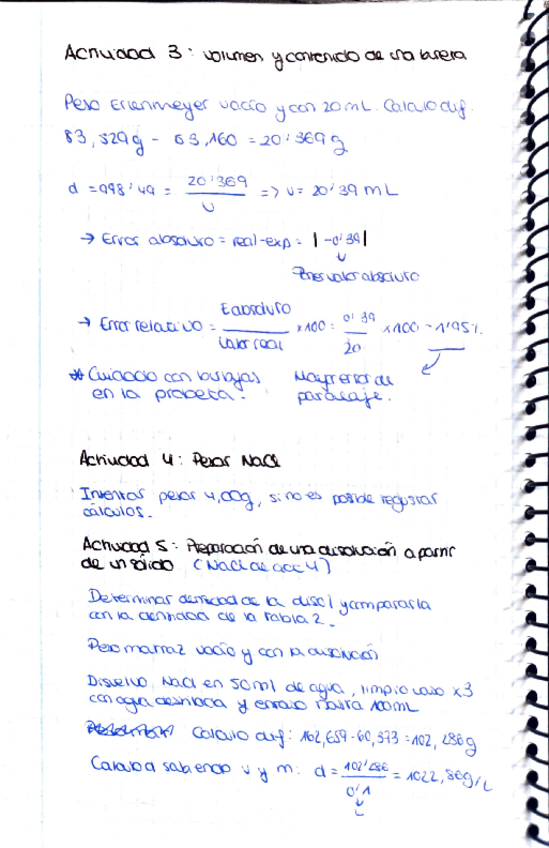 Actividad 3: volumen y contenido de una bureta
Peso Erlenmeyer vacío y con 20 mL. Calculo dif.
83,529g - 63,160 = 20'369 g
d = 998'49 = 20'369 / V => V = 20'39 mL
→ Error absoluto = real-exp = |-0'39|
Poner valor absoluto
→ Error relativo = E absoluto / Valor real x100 = 0'39 / 20 x100 = 1'95%
* Cuidado con burbujas Mayor error de
en la probeta. paralaje.
Actividad 4: Pesar NaCl
Intentar pesar 4,00g, si no es posible registrar
cálculos.
Actividad 5: Preparación de una disolución a partir
de un sólido (NaCl de act 4)
Determinar densidad de la disol y compararla
con la densidad de la tabla 2.
Peso matraz vacío y con la disolución
Disuelvo NaCl en 50ml de agua, limpio vaso x3
con agua destilada y enraso hasta 100mL
Calculo dif: 162,659-60,373 = 102,286g
Calculo d sabiendo v y m: d = 102'286 / 0'1 = 1022,86g/L
L